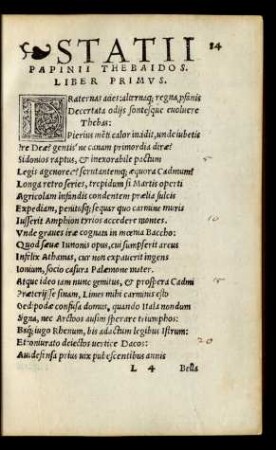 STATII 14
PAPINII THEBAIDOS.
LIBER PRIMVS.
FRaternas acies: alternaq; regna, pfanis
Decertata odijs sontesque euoluere
Thebas:
Pierius mēti calor incidit, unde iubetis
Ire Deæ? gentis' ne canam primordia diræ?
Sidonios raptus, & inexorabile pactum
Legis agenoreæ? scrutantemq; æquora Cadmum?
Longa retro series, trepidum si Martis operti
Agricolam infandis condentem prælia sulcis
Expediam, penitusq; sequar quo carmine muris
Iusserit Amphion tyrios accedere montes.
Vnde graues iræ cognata in mœnia Baccho:
Quod sæuæ Iunonis opus, cui sumpserit arcus
Infœlix Athamas, cur non expauerit ingens
Ionium, socio casura Palæmone mater.
Atque ideo iam nunc gemitus, & prospera Cadmi
Præterijsse sinam, Limes mihi carminis esto
Oedipodæ confusa domus, quando Itala nondum
Signa, nec Arctoos ausim sperare triumphos:
Bisq; iugo Rhenum, bis adactum legibus Istrum:
Et coniurato deiectos uertice Dacos:
Aut defensa prius uix pubescentibus annis
L 4 Bella